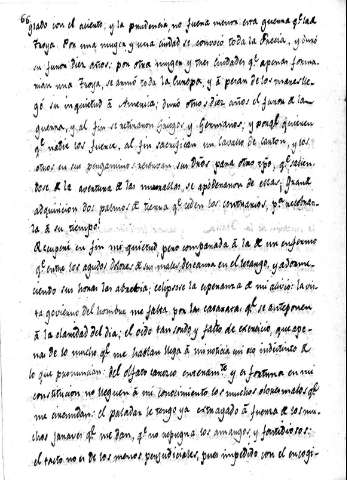 66
glado con el aciento, y la prudencia no fuera menor esta guerra qe. la de
Troya. Por una muger y una ciudad se convocó toda la Grecia, y duró
su furor diez años: por otra muger y tres ciudades qe. apenas forma-
rian una Troya, se armó toda la Europa, y á pesar de los mares lle-
gó su inquietud á America; duró otros diez años el furor de la
guerra, y al fin se retiraron Griegos y Germanos; y porqe. quieren
qe. nadie los fuerce, al fin sacrifican un caballo de carton, y los
otros en sus pergaminos su Dios para otro qe. valien-
dose de la abertura de las murallas, se apoderaron de ellas; Grande
adquisicion dos palmos de tierra qe. ceden los contrarios, pa. recobrar-
la á su tiempo.
Recuperé en fin mi quietud, pero comparada á la de un enfermo
qe. entre los agudos dolores de sus males descansa en el letargo, y adorme-
ciendo sus horas las abrevia; eclipsose la esperanza de mi alivio: la vis-
ta govierno del hombre me falta, por las cataratas qe. se anteponen
á la claridad del dia; el oido tan sordo y falto de exercicio, que ape-
nas de lo mucho qe. me hablan llega á mi noticia un eco indistinto de
lo que pronuncian: del olfato carezco enteramte. y es fortuna en mi
constitucion no lleguen á mi conocimiento los muchos olores malos qe.
me circundan: el paladar le tengo ya estragado á fuerza de los mu-
chos jarabes qe. me dan, qe. no repugna los amargos y fastidiosos:
el tacto no es de los menos perjudiciales, pues impedido con el encogi-